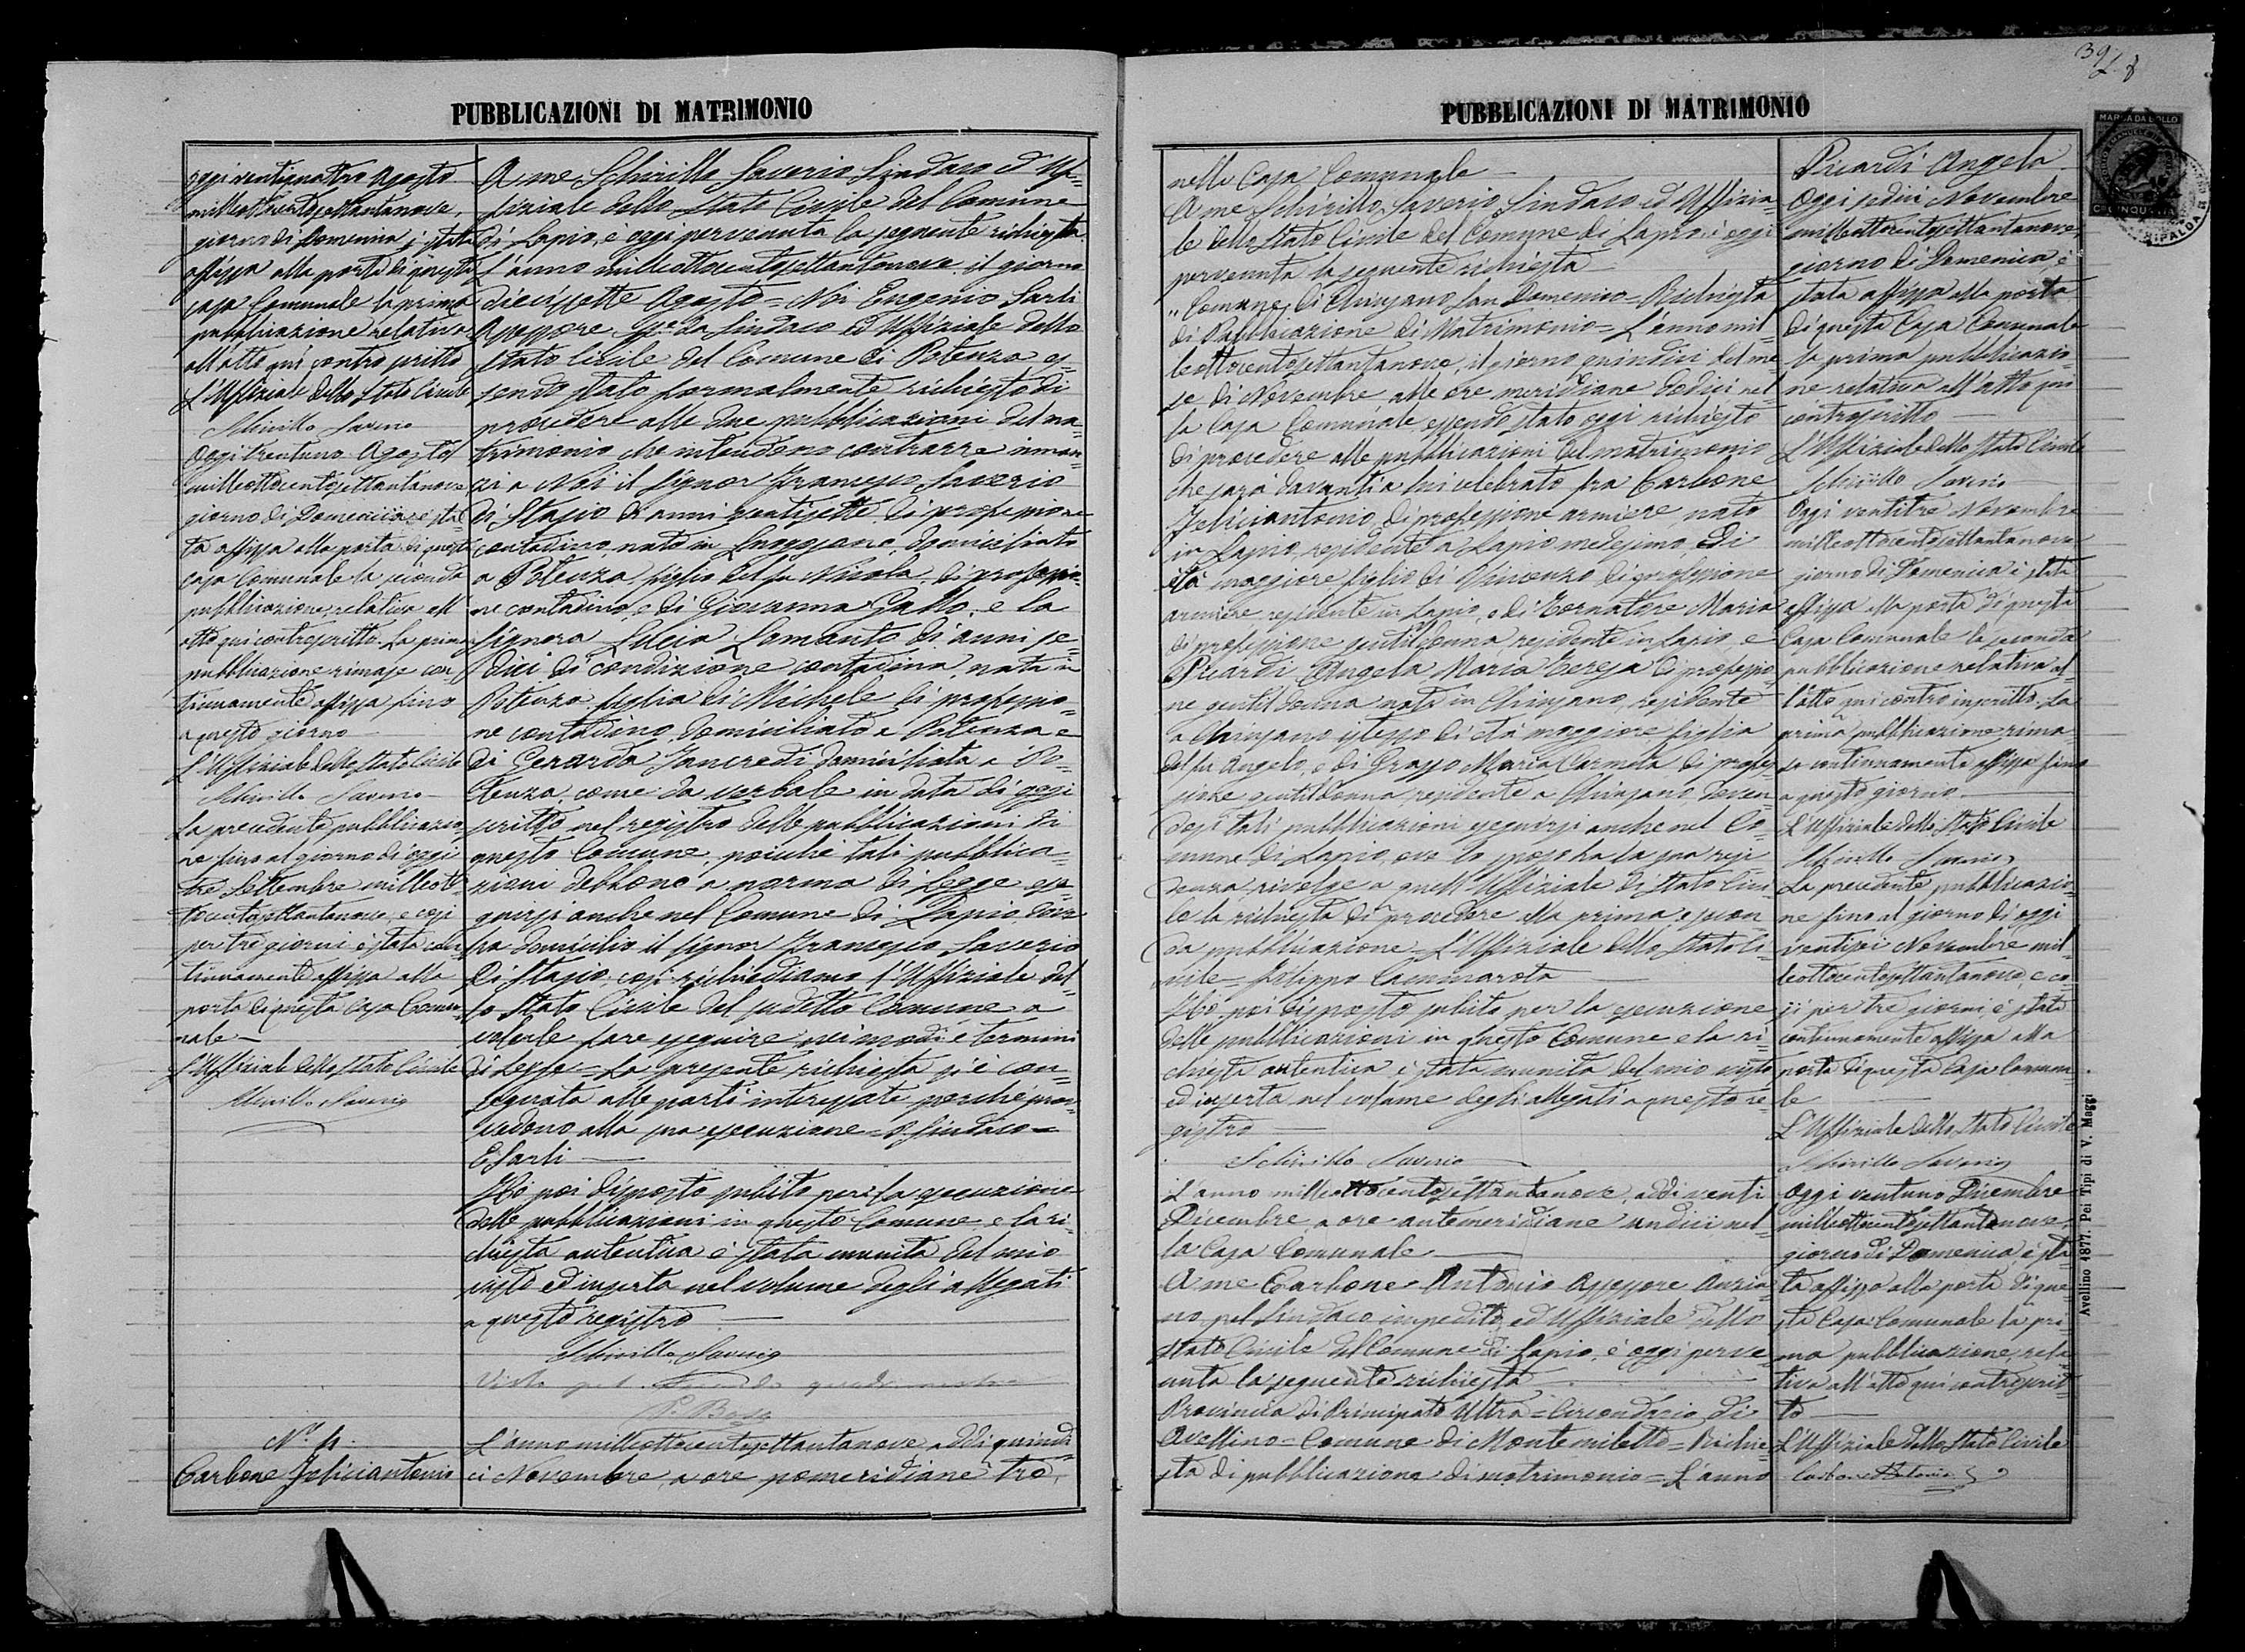 PUBBLICAZIONI DI MATRIMONIO
oggi ventiquattro Agosto
milleottocentosettantanove,
giorno di Domenica, è stata
affissa alla porta di questa
casa Comunale la prima
pubblicazione relativa
all'atto quì contro scritto
L'Uffiziale dello Stato Civile
Schirillo Saverio
Oggi trentuno Agosto
milleottocentosettantanove
giorno di Domenica è sta
ta affissa alla porta di questa
Casa Comunale la seconda
pubblicazione relativa all
atto qui controscritto. La prima
pubblicazione rimase con
tinuamente affissa fino
a questo giorno
L'Uffiziale dello Stato Civile
Schirillo Saverio
La precedente pubblicazio
ne fino al giorno di oggi
tre Settembre milleot
tocentosettantanove, e così
per tre giorni è stata con
tinuamente affissa alla
porta di questa Casa Comu
nale
L'Uffiziale dello Stato Civile
Schirillo Saverio
N. 4.
Carbone Feliciantonio
A me Schirillo Saverio Sindaco ed Uf=
fiziale dello Stato Civile del Comune
di Lapio, è oggi pervenuta la seguente richiesta
L'anno milleottocentosettantanove il giorno
diecissette Agosto = Noi Eugenio Sarli
Assessore ff. da Sindaco ed Uffiziale dello
Stato Civile del Comune di Potenza es=
sendo stato formalmente richiesto di
procedere alle due pubblicazioni del ma=
trimonio che intendono contrarre innan=
zi a Noi il Signor Francesco Saverio
di Stasio di anni ventisette di professione
contadino, nato in domiciliato
a Potenza, figlio del fu Nicola, di professio=
ne contadino, e di Giovanna Gallo, e la
Signora Lucia Lamanto di anni se=
dici di condizione contadina, nata in
Potenza, figlia di Michele di professio=
ne contadino, domiciliato a Potenza e
di Gerarda Tancredi domiciliata a Po=
tenza, come da verbale in data di oggi
scritto nel registro delle pubblicazioni di
questo Comune, poiché tali pubblica=
zioni debbono a norma di Legge ese=
guirsi anche nel Comune di Lapio dove
ha domicilio il Signor Francesco Saverio
di Stasio, così richiediamo l'Uffiziale del=
lo Stato Civile del sudetto Comune a
volerle fare eseguire nei modi e termini
di Legge = La presente richiesta si è con=
segnata alle parti interessate perché prov=
vedono alla sua esecuzione = Il Sindaco =
E. Sarli
Ho poi disposto subito per la esecuzione
delle pubblicazioni in questo Comune, e la ri=
chiesta autentica è stata munita del mio
visto ed inserta nel volume degli allegati
a questo registro
Schirillo Saverio
Visto
L'anno milleottocentosettantanove, addì quindi
ci Novembre, a ore pomeridiane tre,
PUBBLICAZIONI DI MATRIMONIO
nella Casa Comunale
A me Schirillo Saverio Sindaco ed Uffizia=
le dello Stato Civile del Comune di Lapio è oggi
pervenuta la seguente richiesta
"Comune di Chiusano San Domenico = Richiesta
di Pubblicazione di Matrimonio = L'anno mil=
leottocentosettantanove, il giorno quindici del me
se di Novembre alle ore meridiane dodici nel
la Casa Comunale, essendo stato oggi richiesto
di procedere alle pubblicazioni del matrimonio
che sarà davanti a lui celebrato fra Carbone
Feliciantonio, di professione armiere, nato
in Lapio, residente a Lapio medesimo, di
età maggiore figlio di Vincenzo di professione
armiere, residente in Lapio, e di Tornatore Maria
di professione gentildonna, residente in Lapio, e
Picardi Angela Maria Teresa di professio
ne gentildonna nata in Chiusano, residente
a Chiusano stesso di età maggiore, figlia
del fu Angelo, e di Grasso Maria Carmela di profes
sione gentildonna, residente a Chiusano, doven
dosi tali pubblicazioni eseguirsi anche nel Co=
mune di Lapio, ove lo sposo ha la sua resi
denza, rivolge a quell'Uffiziale di Stato Civi
le la richiesta di procedere alla prima e secon
da pubblicazione = L'Uffiziale dello Stato Ci
vile = Filippo Cammarota
Ho poi disposto subito per la esecuzione
delle pubblicazioni in questo Comune e la ri=
chiesta autentica è stata munita del mio visto
ed inserta nel volume degli allegati a questo re=
gistro
Schirillo Saverio
L'anno milleottocentosettantanove, addì venti
Dicembre, a ore antemeridiane undici nel=
la Casa Comunale
A me Carbone Antonio Assessore Anzia=
no, pel Sindaco impedito, ed Uffiziale dello
Stato Civile del Comune di Lapio, è oggi perve=
nuta la seguente richiesta
Provincia di Principato Ultra = Circondario di
Avellino = Comune di Montemiletto = Richie=
sta di pubblicazione di matrimonio = L'anno
Picardi Angela
Oggi sedici Novembre
milleottocentosettantanove,
giorno di Domenica, è
stata affissa alla porta
di questa Casa Comunale
la prima pubblicazio
ne relativa all'atto qui
controscritto
L'Uffiziale dello Stato Civile
Schirillo Saverio
Oggi ventitre Novembre
milleottocentosettantanove
giorno di Domenica è stata
affissa alla porta di questa
Casa Comunale la seconda
pubblicazione relativa al
l'atto qui contro inscritto. La
prima pubblicazione rima
se continuamente affissa fino
a questo giorno
L'Uffiziale dello Stato Civile
Schirillo Saverio
La precedente pubblicazio
ne fino al giorno di oggi
ventisei Novembre mil=
leottocentosettantanove, e co=
sì per tre giorni è stata
continuamente affissa alla
porta di questa Casa Comuna
le
L'Uffiziale dello Stato Civile
Schirillo Saverio
Oggi ventuno Dicembre
milleottocentosettantanove,
giorno di Domenica, è sta
ta affissa alla porta di que
sta Casa Comunale la pri
ma pubblicazione, rela
tiva all'atto qui controscrit=
to
L'Uffiziale dello Stato Civile
Carbone Antonio
39
MARCA DA BOLLO
Avellino 1877. Pei Tipi di V. Maggi